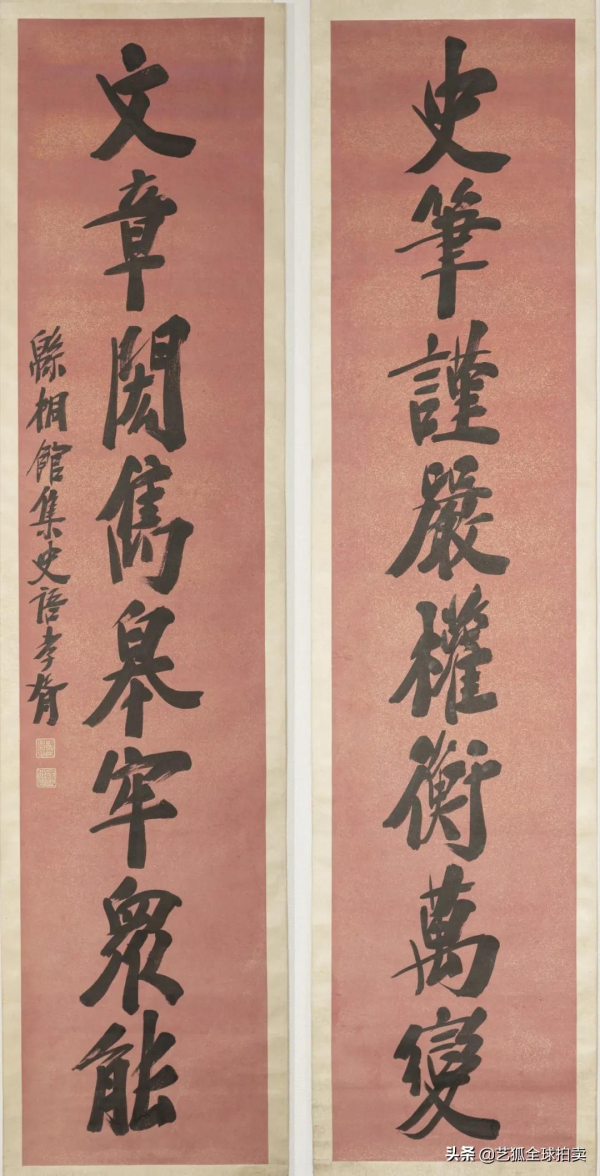 史筆謹嚴權衡萬變
文章閎雋皋牢眾能
緜桐館集史語孝胥
头条 @艺狐全球拍卖